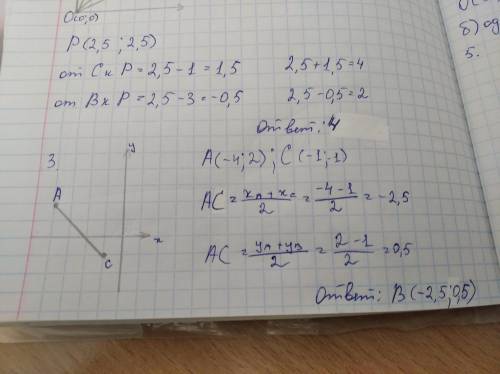 O(0;0)
P(2,5 ; 2,5)
от C к P = 2,5 - 1 = 1,5 2,5 + 1,5 = 4
от B к P = 2,5 - 3 = -0,5 2,5 - 0,5 = 2
Ответ: 4
3.
y
A
x
C
A(-4; 2) ; C (-1; -1)
AC = (xA + xC)/2 = (-4 - 1)/2 = -2,5
AC = (yA + yB)/2 = (2 - 1)/2 = 0,5
Ответ: B (-2,5; 0,5)
б)
5.